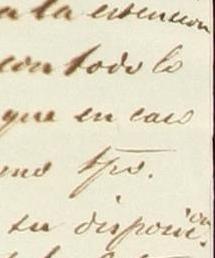 a la estension
con todo lo
que en caso
mo tpo.
su disposi.on